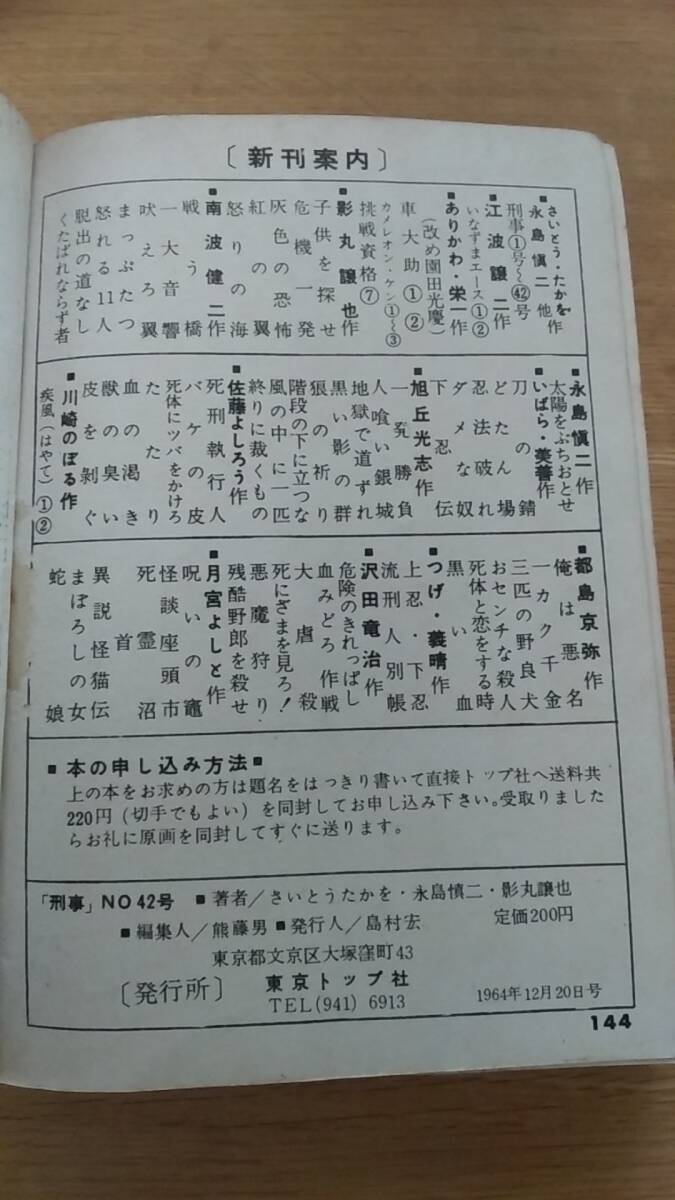 〔新刊案内〕
■さいとう・たかを
永島慎二 他作
刑事①号〜㊷号
■江波譲二作
いなずまエース①②
■ありかわ・栄一作
(改め園田光慶)
車大助①②
カメレオン・ケン①〜③
挑戦資格⑦
■影丸譲也作
子供を探せ
危機一発
灰色の恐怖
紅の翼
怒りの海
■南波健二作
戦う橋
一大音響
吠えろ翼
まっぷたつ
怒れる11人
脱出の道なし
くたばれならず者
■永島慎二作
太陽をぶちおとせ
■いばら・美善作
刀の錆
どたん場
忍法破れ
ダメな奴
下忍伝
■旭丘光志作
一発勝負
人喰い銀城
地獄で道ずれ
黒い影の群
狼の祈り
階段の下に立つな
風の中に一匹
終りに裁くもの
■佐藤よしろう作
死刑執行人
バケの皮
死体にツバをかけろ
たたり
血の渇き
獣の臭い
皮を剥ぐ
■川崎のぼる作
疾風(はやて)①②
■都島京弥作
俺は悪名
一カク千金
三匹の野良犬
おセンチな殺人
死体と恋をする時
黒い血
■つげ・義晴作
上忍・下忍
流刑人別帳
■沢田竜治作
危険のきれっぱし
血みどろ作戦
大虐殺
死にざまを見ろ!
悪魔狩り
残酷野郎を殺せ
■月宮よしと作
呪いの竈
怪談座頭市
死霊沼
首
異説怪猫伝
まぼろしの女
蛇娘
■本の申し込み方法■
上の本をお求めの方は題名をはっきり書いて直接トップ社へ送料共
220円(切手でもよい)を同封してお申し込み下さい。受取りました
らお礼に原画を同封してすぐに送ります。
「刑事」NO42号 ■著者/さいとうたかを・永島慎二・影丸譲也
■編集人/熊藤男■発行人/島村宏 定価200円
東京都文京区大塚窪町43
〔発行所〕 東京トップ社
TEL(941)6913
1964年12月20日号
144